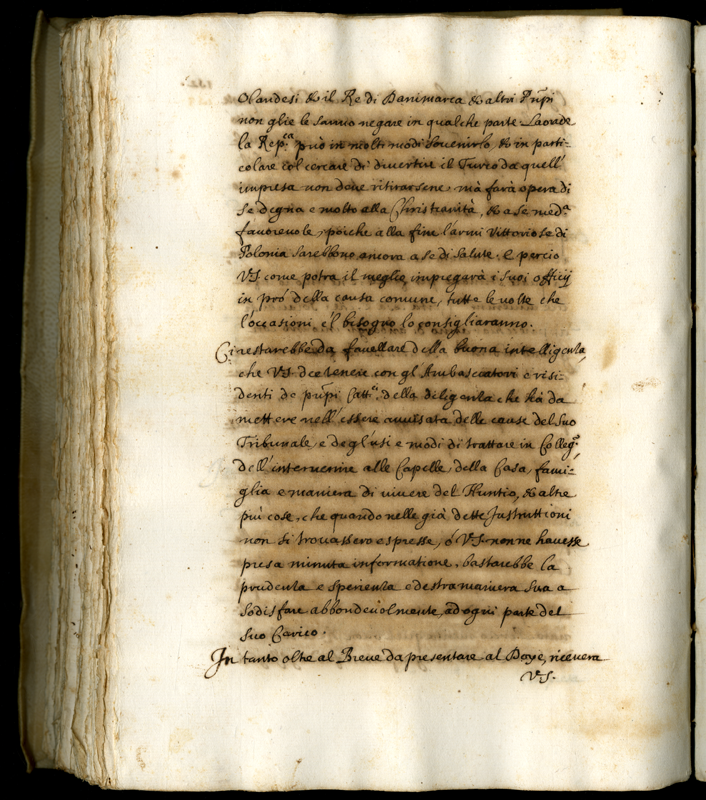 Olandesi & il Re di Danimarca & altri Prīpi
non glie le sanno negare in qualche parte. Laonde
la Rep.ca può in molti modi sovenirlo & in parti-
colare col cercare di divertire il Turco da quell'
impresa non deve ritirarsene, mà farà opera di
se degna e molto alla Christianità, & a se med.a
favorevole, poiche alla fine l'armi Vittoriose di
Polonia sarebbono ancora a se di salute. e percio
VS come potra il meglio impiegarà i suoi officij
in pró della causa comune, tutte le volte che
l'occasioni, e'l bisogno lo consigliaranno.
Ci restarebbe da favellare della buona intelligenza,
che VS. dee tenere con gl'Ambasciatori e resi-
denti de prīpi Catt.ci della diligenza che hà da
mettere nell'essere avvisata delle cause del suo
Tribunale, e degl'usi e modi di trattare in Colleg.o
dell'intervenire alle Capelle, della Casa, fami-
glia e maniera di vivere del Nuntio, & altre
più cose, che quando nelle già dette Instruttioni
non si trovassero espresse, ó VS. non ne havesse
presa minuta informatione, bastarebbe la
prudenza e sperienza e destra maniera sua a
sodisfare abbondevolmente, ad ogni parte del
suo Carico.
In tanto oltre al Breve da presentare al Doge, ricevera
VS.